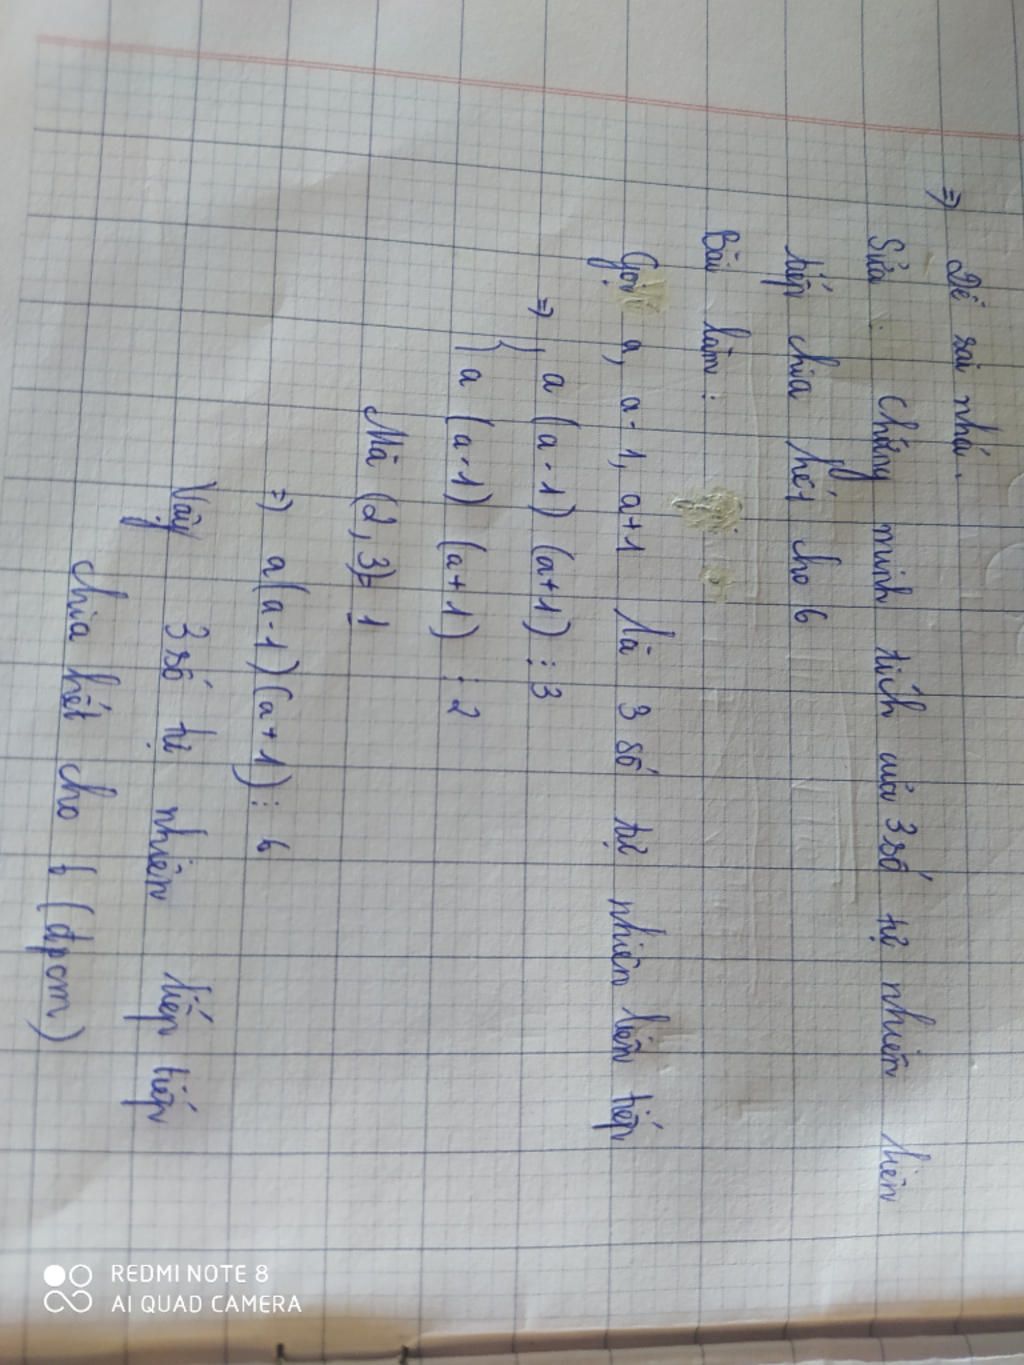 ⇒ Đề sai nhá.
Sửa : Chứng minh tích của 3 số tự nhiên liên
tiếp chia hết cho 6
Bài làm :
Gọi a, a-1, a+1 là 3 số tự nhiên liên tiếp
⇒ { a (a-1) (a+1) ⋮ 3
{ a (a-1) (a+1) ⋮ 2
Mà (2, 3) = 1
⇒ a(a-1)(a+1) ⋮ 6
Vậy 3 số tự nhiên liên tiếp
chia hết cho 6 (đpcm)
REDMI NOTE 8
AI QUAD CAMERA